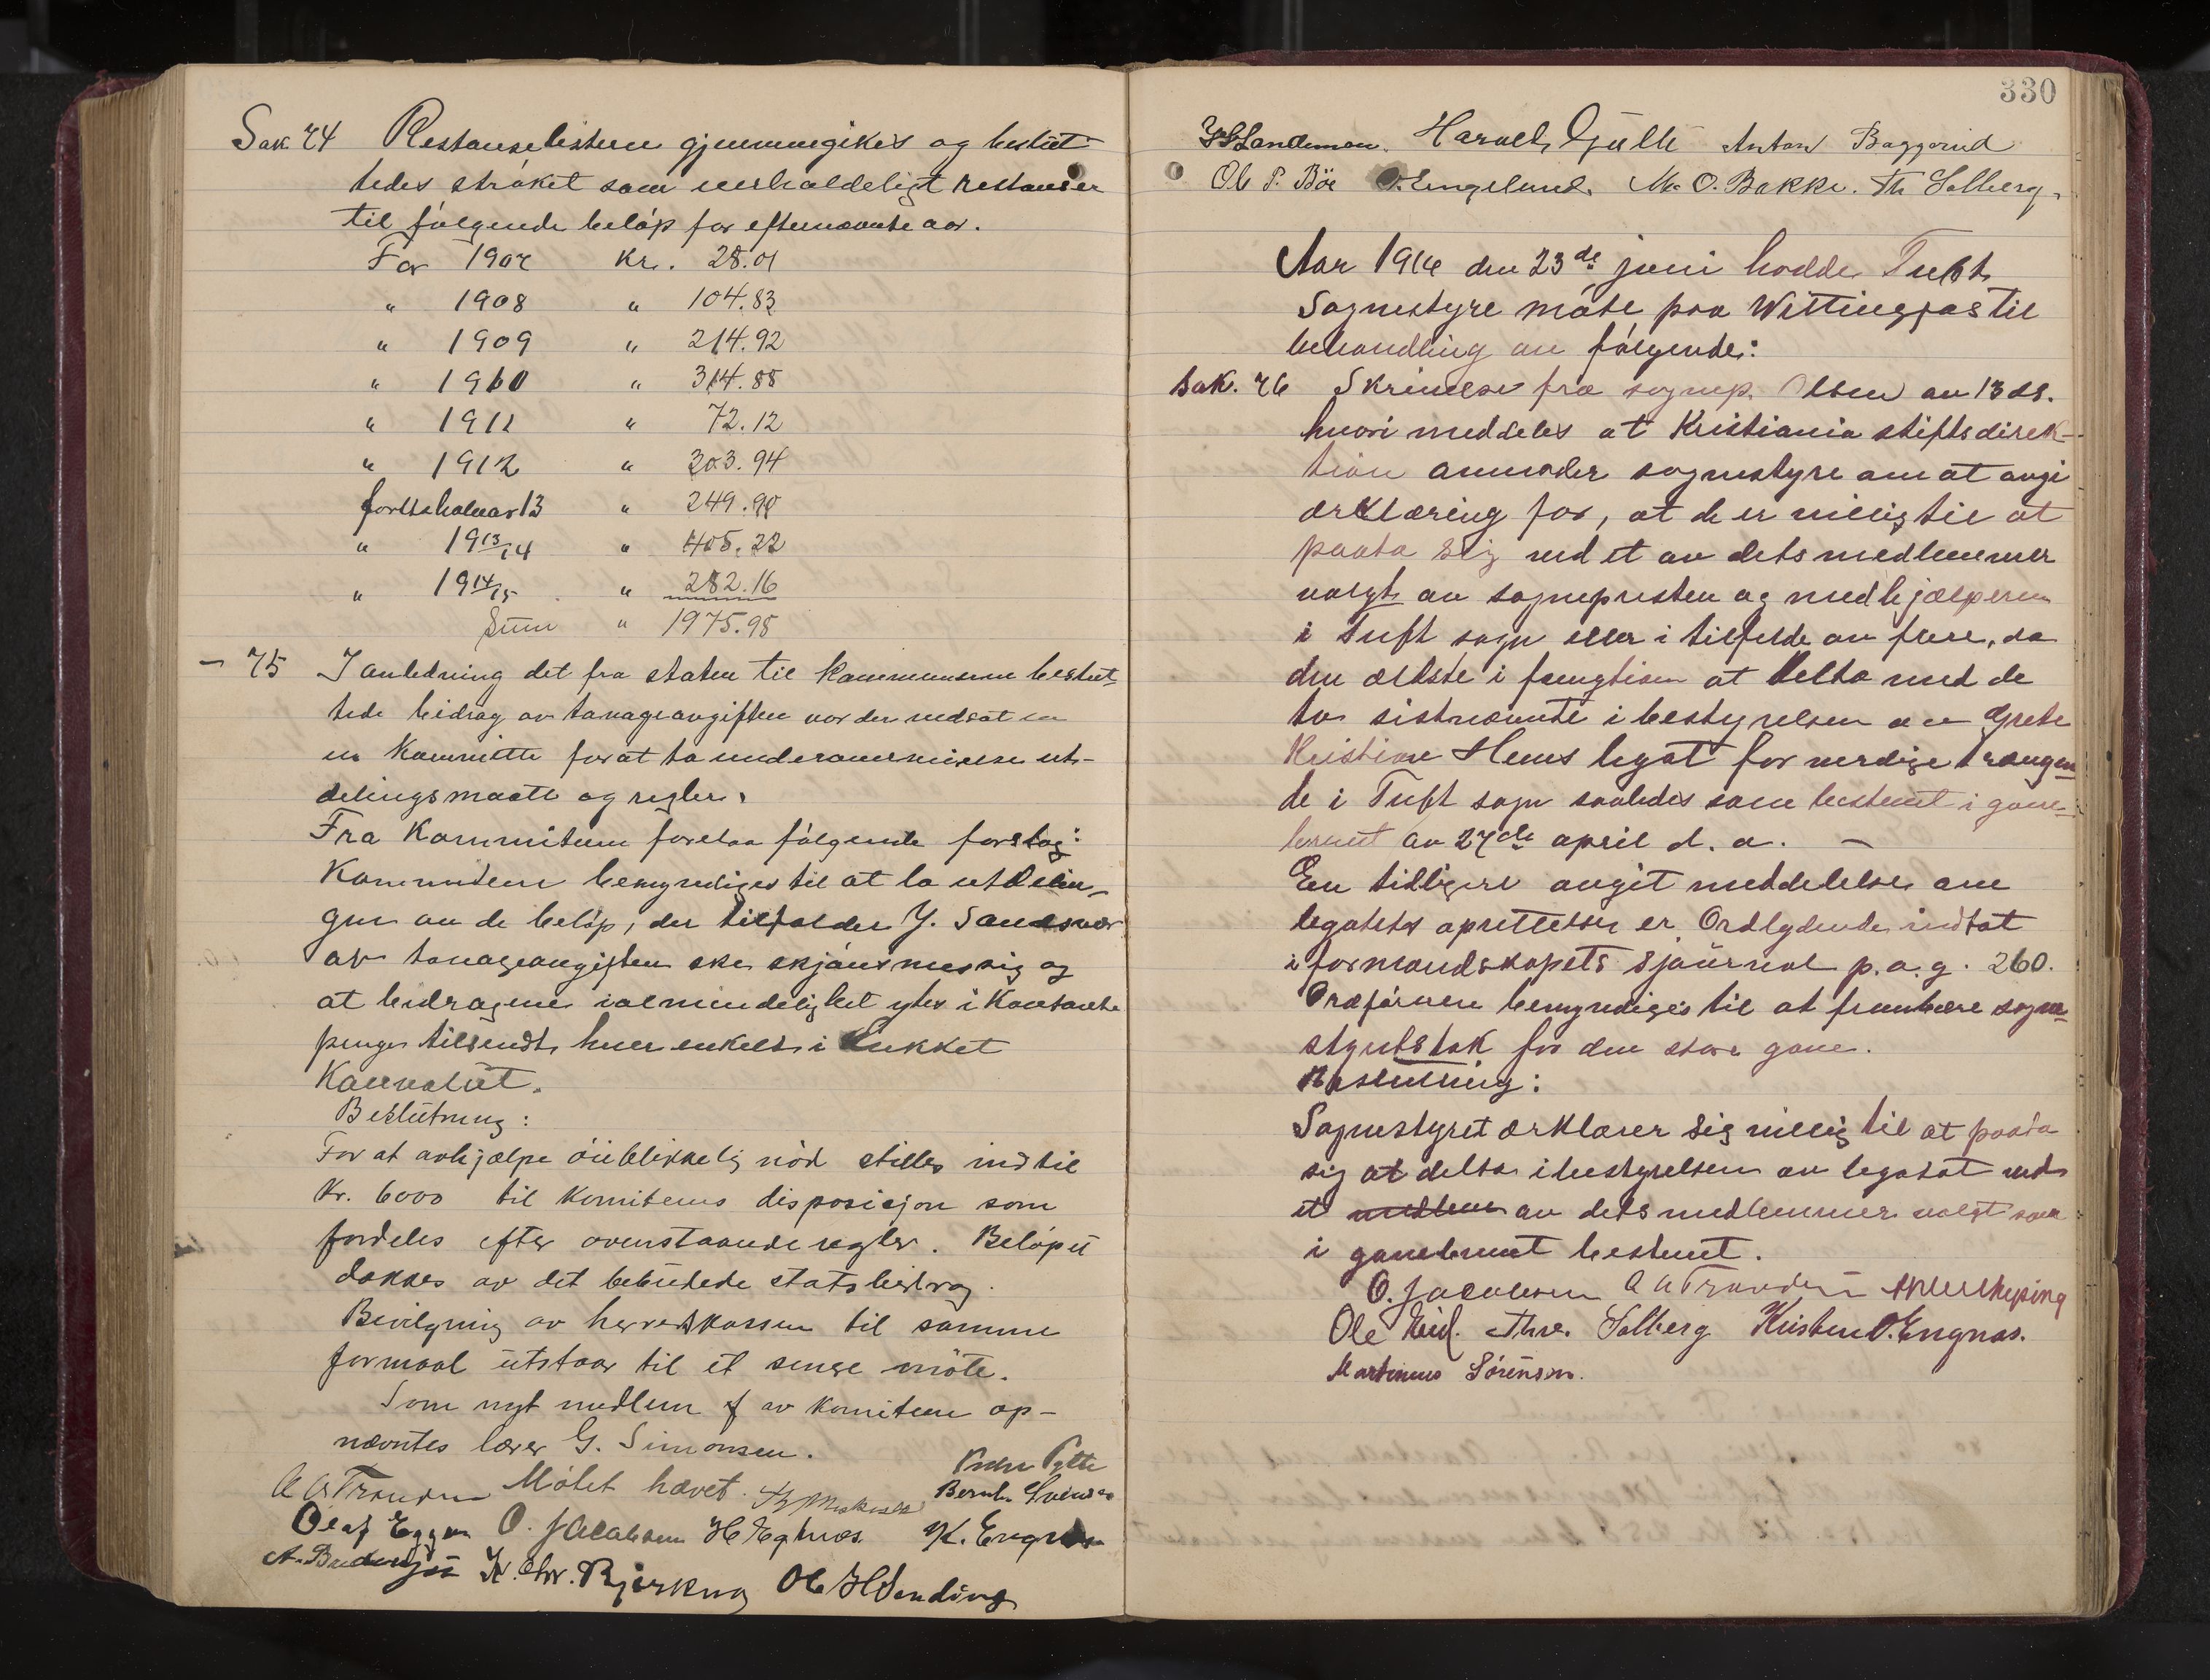 Sak 74 Restanselisterne gjennemgikes og beslut-
tedes strøket som uerholdeligt restanser
til følgende beløp for efternævnte aar.
For 1907 Kr. 28.01
" 1908 " 104.83
" 1909 " 214.92
" 1910 " 314.88
" 1911 " 72.12
" 1912 " 303.94
første halvaar 13 " 249.90
" 1913/14 " 405.22
" 1914/15 " 282.16
Sum " 1975.98
- 75 I anledning det fra staten til kommunerne beslut-
tede bidrag av tonageavgiften var der nedsat en
en Kommitte for at ta under overveielse ut-
delingsmaate og regler.
Fra Kommiteen forelaa følgende forslag:
Kommiteen bemyndiges til at la utdelin-
gen av de beløp, der tilfalder Y. Sandsvær
av tonageavgiften ske skjønsmessig og
at bidragene i almindelighet ytes i Kontante
penger tilsendt hver enkelt i lukket
Konvolut.
Beslutning:
For at avhjælpe øieblikkelig nød stilles indtil
Kr. 6000 til Komiteens disposisjon som
fordeles efter ovenstaaende regler. Beløpet
dækkes av det bebudede statsbidrag.
Bevilgning av herredskassen til samme
formaal utstaar til et senere møte.
Som nyt medlem f av Komiteen op-
nævntes lærer G. Simonsen.
Møtet hævet.
Peder Pytte
A A Tranden Bernh. Svendsen
Olaf Eggen O. Jacobsen H Egnæs. K. Engnæs
K. Chr. Bjerknes Ole H Sending
330
Harvek Gjelle Anton Baggerud
Ole P. Böe O. Engelund. M. O. Bakke. Th Solberg.
Aar 1916 den 23de juni hadde Tuft
Sognestyre møte paa Wittingfos til
behandling av følgende:
Sak. 76 Skrivelse fra sognep. Olsen av 13 ds.
hvori meddeles at Kristiania stiftsdirek-
tion anmoder sognestyre om at avgi
erklæring for, at de er villig til at
paata sig ved et av dets medlemmer
valgt av sognepresten og medhjælperen
i Tuft sogn eller i tilfelde av flere, da
den ældste i fungtion at delta med de
to sistnævnte i bestyrelsen av Grete
Kristine Hems legat for verdige trængen-
de i Tuft sogn saaledes som bestemt i gave-
brevet av 27de april d. a. -
En tidligere avgit meddelelse om
legatets oprettelse er Ordlydende indtat
i formandskapets sjournal p.a.g. 260.
Ordføreren bemyndiges til at frembære sogne-
styrets tak for den store gave.
Beslutning:
Sognestyret erklærer sig villig til at paata
sig at delta i bestyrelsen av legatet ved
et medlem av dets medlemmer valgt som
i gavebrevet bestemt.
O. Jacobsen A A Tranden
Ole Eid. Thv. Solberg Kristen O. Engnæs.
Martinius Sørensen.